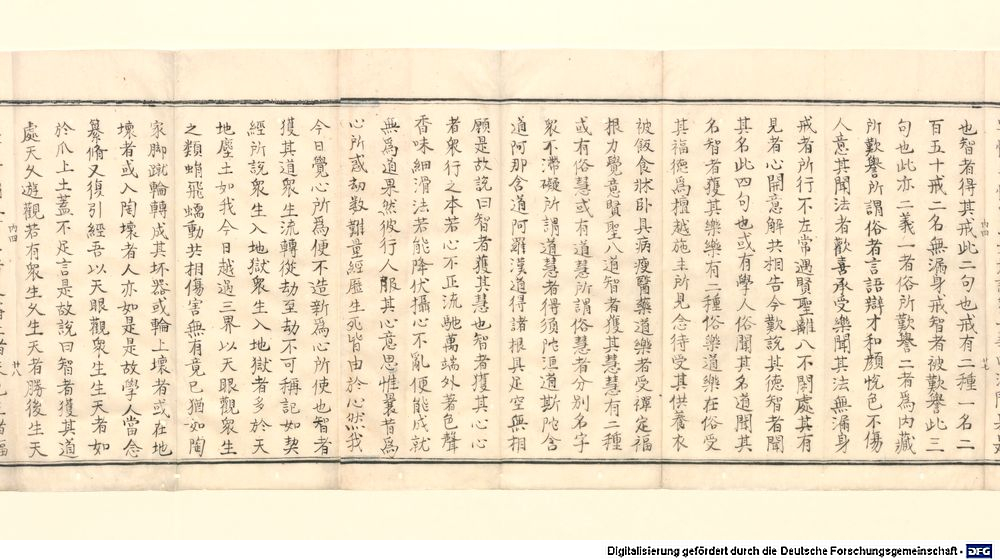 也智者得其戒此二句也戒有二種一名二
百五十戒二名無漏身戒智者被歎譽此三
句也此亦二義一者俗所歎譽二者為内藏
所歎譽所謂俗者言語辯才和顏悅色不傷
人意其聞法者歡喜承受樂聞其法無漏身
戒者所行不左常遇賢聖離八不閑處其有
見者心開意解共相告令歎說其德智者聞
其名此四句也或有學人俗聞其名道聞其
名智者獲其樂樂有二種俗樂道樂在俗受
其福德為檀越施主所見念待受其供養衣
被飯食牀卧具病瘦醫藥道樂者受禪定福
根力覺意賢聖八道智者獲其慧慧有二種
或有俗慧或有道慧所謂俗慧者分別名字
衆不滯礙所謂道慧者得須陁洹道斯陁含
道阿那含道阿羅漢道得諸根具足空無相
願是故說曰智者獲其慧也智者獲其心心
者衆行之本若心不正流馳萬端外著色聲
香味細滑法若能降伏攝心不亂便能成就
無為道果然彼行人服其心意思惟曩者為
心所惑劫數難量經歷生死皆由於心然我
今日覺心所為便不造新為心所使也智者
獲其道衆生流轉從劫至劫不可稱記如契
經所說衆生入地獄衆生入地獄者多於天
地塵土如我今日越過三界以天眼觀衆生
之類蛸飛蠕動共相傷害無有竟已猶如陶
家脚蹴輪轉成其坏器或輪上壞者或在地
壞者或入陶壞者人亦如是是故學人當念
纂脩又復引經吾以天眼觀衆生生天者如
於爪上土蓋不足言是故說曰智者獲其道
處天久遊觀若有衆生久生天者勝後生天
Digitalisierung gefördert durch die Deutsche Forschungsgemeinschaft - DFG